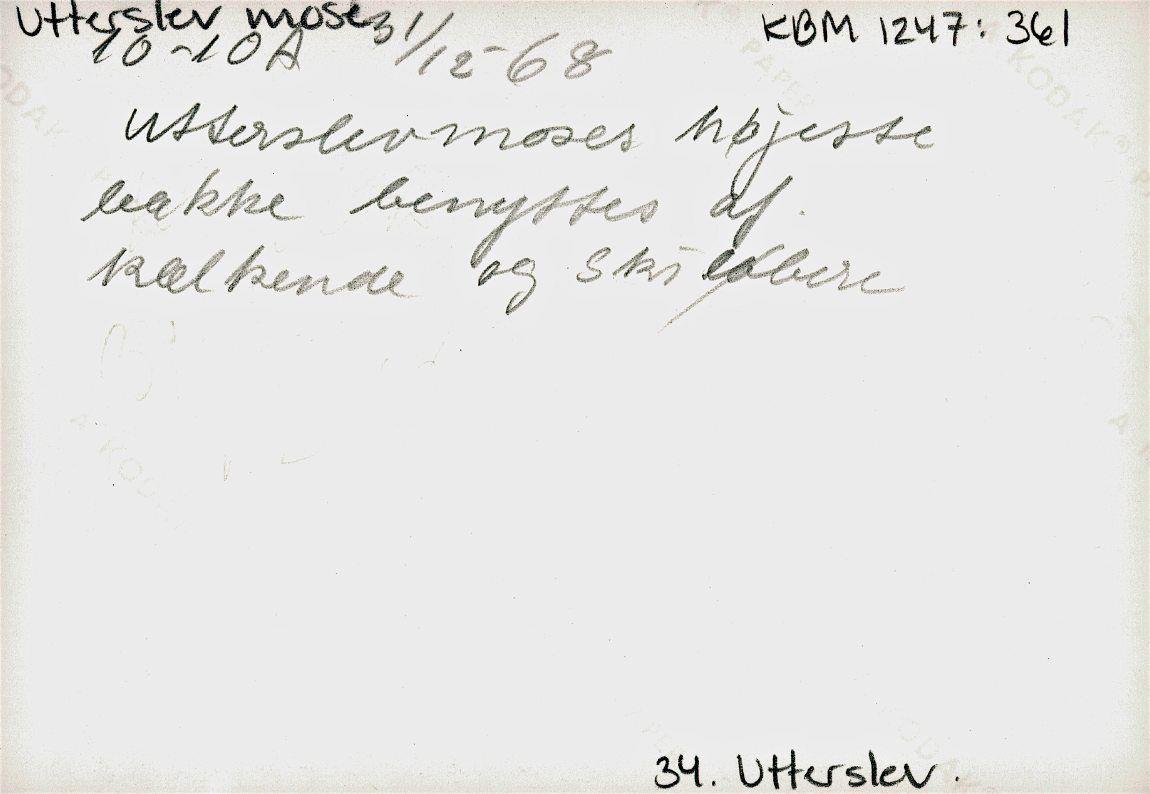 Utterslev mose KBM 1247:361
10-10A 31/12-68
Utterslevmoses højeste
bakke benyttes af
kælkende og Skiløbere
34. Utterslev.